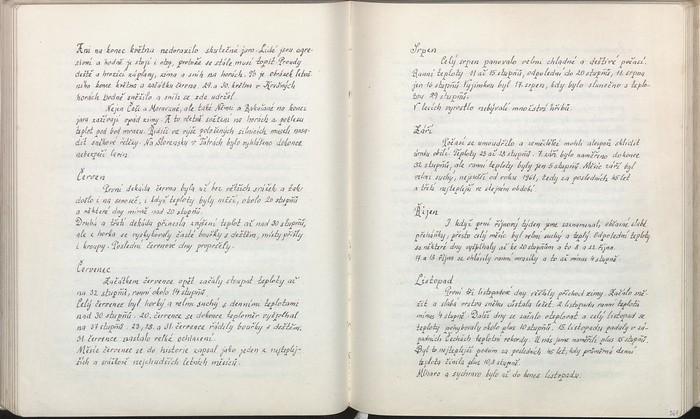 Ani na konec května nedorazilo skutečné jaro. Lidé jsou agre-
sivní a hodně je stojí i otop, protože se stále musí topit. Proudy
deště a hrozící záplavy, zima a sníh na horách. To je obrázek letoš-
ního konce května a začátku června. 29. a 30. května v Krušných
horách hodně sněžilo a sníh se zde udržel.
Nejen Češi a Moravané, ale také Němci a Rakušané na konci
jara zažívají opád zimy. A to včetně sněžení na horách a poklesu
teplot pod bod mrazu. Řidiči ve výše položených silnicích museli nasa-
dit sněhové řetězy. Na Slovensku v Tatrách bylo vyhlášeno dokonce
nebezpečí lavin.
Červen
První dekáda června byla už bez větších srážek a tak
došlo i na senoseč, i když teploty byly nižší, okolo 20 stupňů
a některé dny mírně nad 20 stupňů.
Druhá a třetí dekáda přinesla zvýšení teplot až nad 30 stupňů,
ale z horka se vyskytovaly časté bouřky s deštěm, místy přišly
i kroupy. Poslední červnové dny propršely.
Červenec
Začátkem července opět začaly stoupat teploty až
na 32 stupňů, ranní okolo 14 stupňů.
Celý červenec byl horký a velmi suchý s denními teplotami
nad 30 stupňů. 20. července se dokonce teploměr vyšplhal
na 37 stupňů. 23., 28. a 31. července řádily bouřky s deštěm.
31. července nastalo velké ochlazení.
Měsíc červenec se do historie zapsal jako jeden z nejteplej-
ších a srážkově nejchudších letních měsíců.
Srpen
Celý srpen panovalo velmi chladné a deštivé počasí.
Ranní teploty 11 až 15 stupňů, odpolední do 20 stupňů, 11. srpna
jen 16 stupňů. Výjimkou byl 17. srpen, kdy bylo slunečno a teplo-
tou 29 stupňů.
V lesích vyrostlo nebývalé množství hřibů.
Září
Počasí se umoudřilo a zemědělci mohli alespoň sklidit
úrodu obilí. Teploty 23 až 28 stupňů. 7. září bylo naměřeno dokonce
32 stupňů, ale ranní teploty byly jen 5 stupňů. Měsíc září byl
velmi suchý, nejsušší od roku 1961, tedy za posledních 45 let
a třetí nejteplejší ve stejném období.
Říjen
I když první říjnový týden jsme zaznamenali občasné slabé
přeháňky, přesto celý měsíc byl velmi suchý a teplý. Odpolední teploty
se některé dny vyšplhaly až ke 20 stupňům a to 8. a 12. října.
17. a 18. října se ohlásily ranní mrazíky a to až mínus 4 stupně.
Listopad
První tři listopadové dny věštily příchod zimy. Začalo sně-
žit a slabá vrstva sněhu zůstala ležet. 2. listopadu ranní teplota
mínus 4 stupně. Další dny se začalo oteplovat a celý listopad se
teploty pohybovaly okolo plus 10 stupňů. 15. listopadu padaly v zá-
padních Čechách teplotní rekordy. U nás jsme naměřili plus 15 stupňů.
Byl to nejteplejší podzim za posledních 40 let, kdy průměrná denní
teplota činila plus 10,3 stupně.
Mlhavo a sychravo bylo až do konce listopadu.